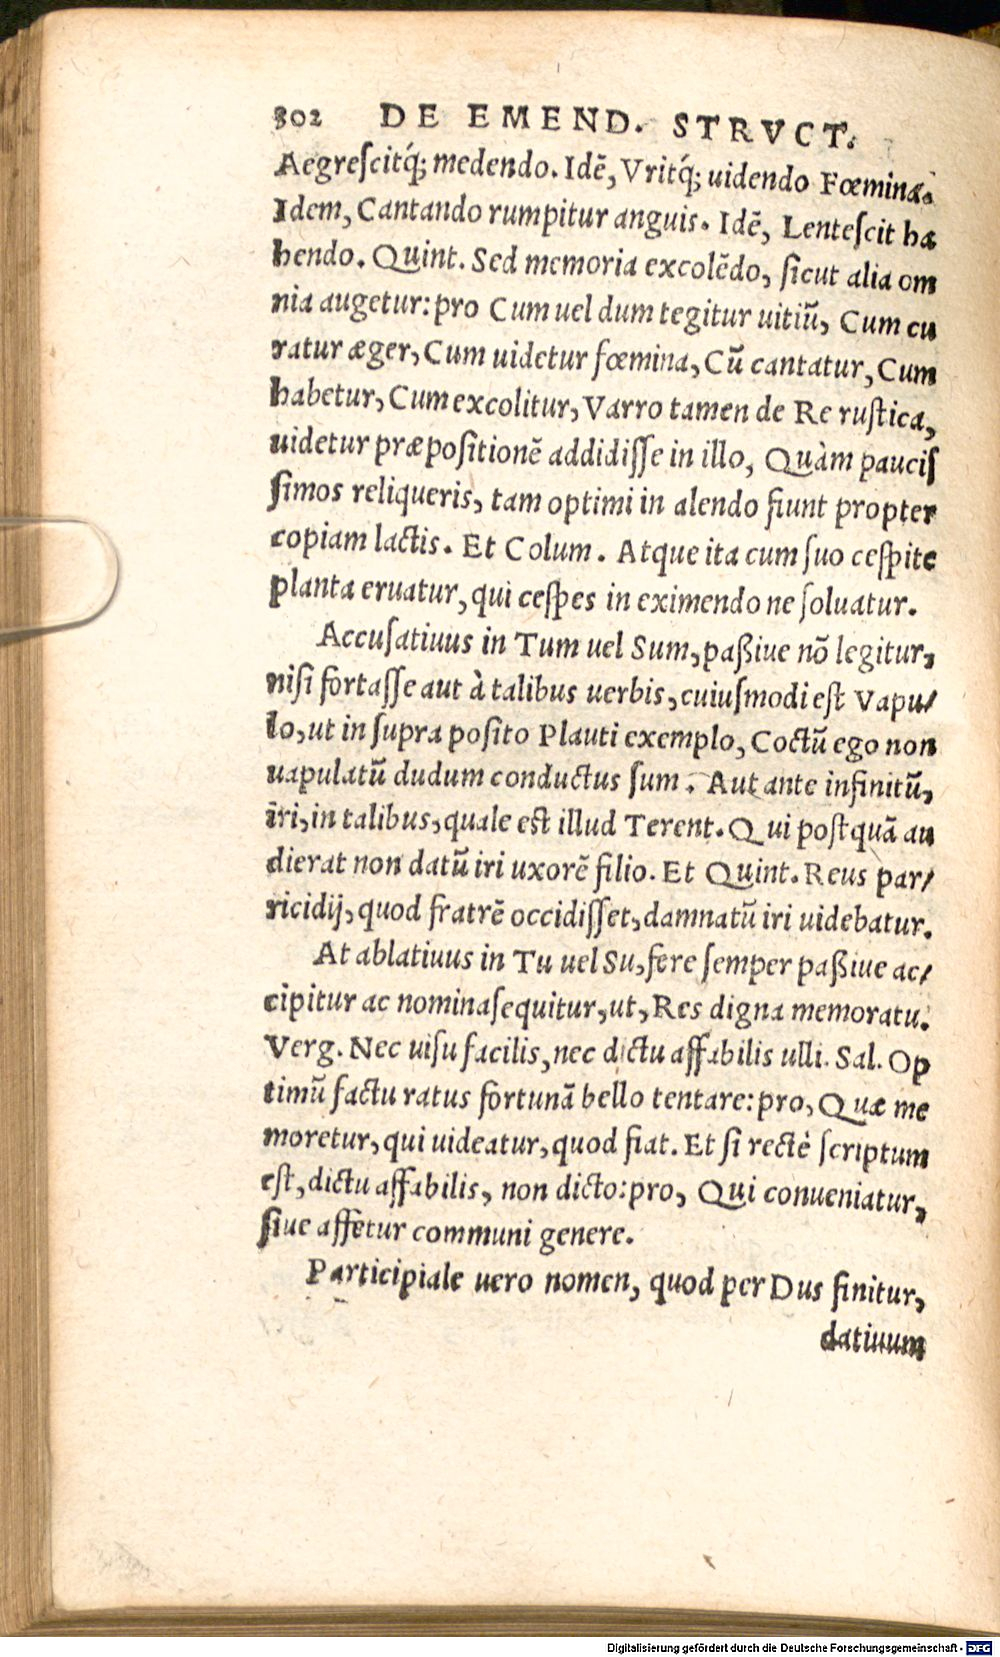 302 DE EMEND. STRVCT.
Aegreſcitq́; medendo. Idẽ, Vritq́; uidendo Fœmina.
Idem, Cantando rumpitur anguis. Idẽ, Lenteſcit ha
bendo. Quint. Sed memoria excolẽdo, ſicut alia om
nia augetur: pro Cum uel dum tegitur uitiũ, Cum cu
ratur æger, Cum uidetur fœmina, Cũ cantatur, Cum
habetur, Cum excolitur, Varro tamen de Re ruſtica,
uidetur præpoſitionẽ addidiſſe in illo, Quàm pauciſ
ſimos reliqueris, tam optimi in alendo fiunt propter
copiam lactis. Et Colum. Atque ita cum ſuo ceſpite
planta eruatur, qui ceſpes in eximendo ne ſoluatur.
Accuſatiuus in Tum uel Sum, paßiue nõ legitur,
niſi fortaſſe aut à talibus uerbis, cuiuſmodi eſt Vapu/
lo, ut in ſupra poſito Plauti exemplo, Coctũ ego non
uapulatũ dudum conductus ſum. Aut ante infinitũ,
iri, in talibus, quale eſt illud Terent. Qui poſtquã au
dierat non datũ iri uxorẽ filio. Et Quint. Reus par/
ricidij, quod fratrẽ occidiſſet, damnatũ iri uidebatur.
At ablatiuus in Tu uel Su, fere ſemper paßiue ac/
cipitur ac nomina ſequitur, ut, Res digna memoratu.
Verg. Nec uiſu facilis, nec dictu affabilis ulli. Sal. Op
timũ factu ratus fortunã bello tentare: pro, Quæ me
moretur, qui uideatur, quod fiat. Et ſi rectè ſcriptum
eſt, dictu affabilis, non dicto: pro, Qui conueniatur,
ſiue affetur communi genere.
Participiale uero nomen, quod per Dus finitur,
datiuum
Digitalisierung gefördert durch die Deutsche Forschungsgemeinschaft - DFG